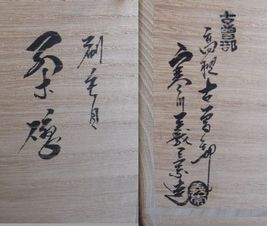 刷毛目
茶碗
古曽部
高槻古曽部
寒川義崇造